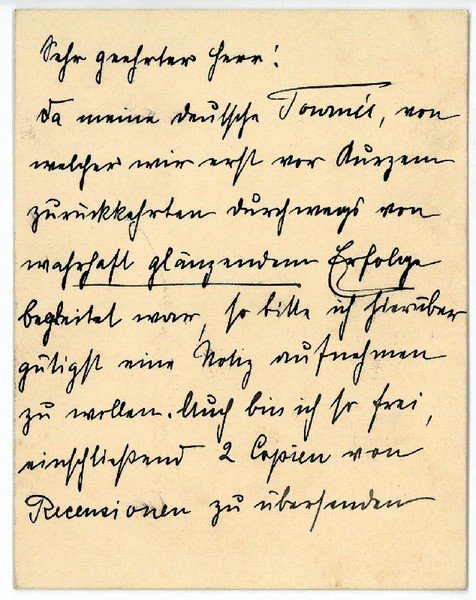 Sehr geehrter Herr!
Da meine deutsche Tournée, von
welcher wir erst vor Kurzem
zurückkehrten durchwegs von
wahrhaft glänzendem Erfolge
begleitet war, so bitte ich hierüber
gütigst eine Notiz aufnehmen
zu wollen. Auch bin ich so frei,
einschließend 2 Copien von
Recensionen zu übersenden